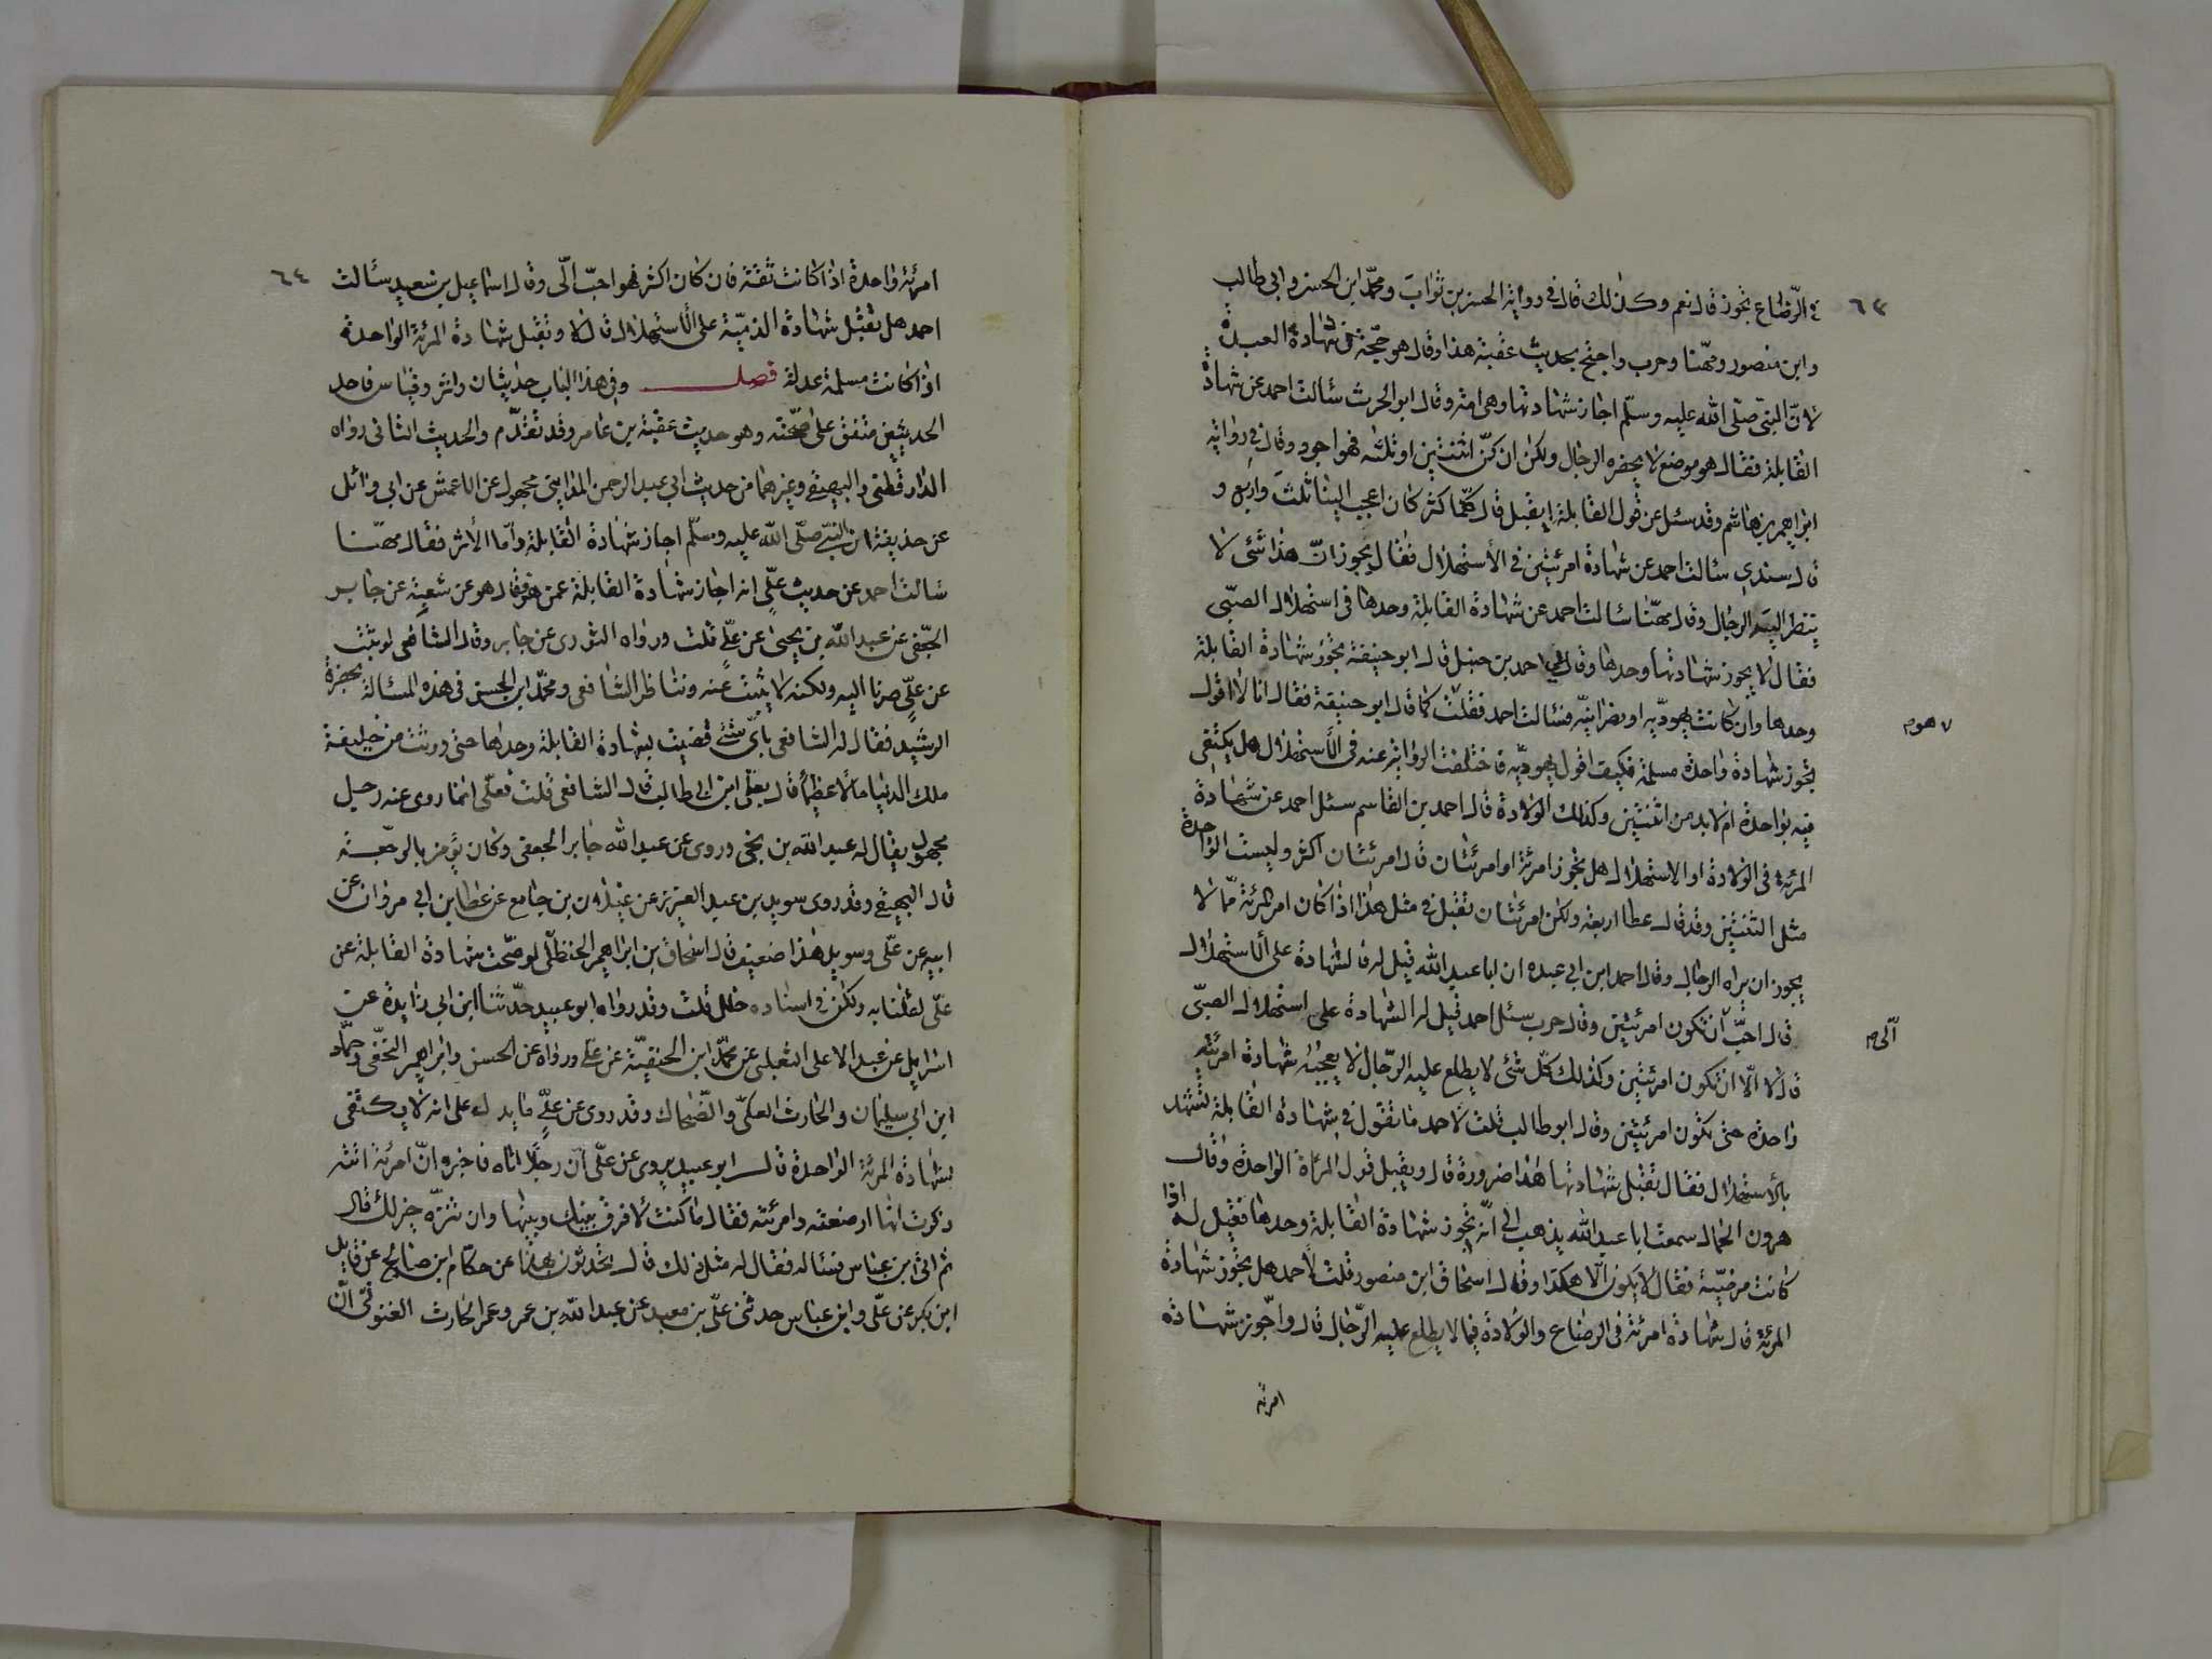 ٦٣
في الرّضاع تجوز قال نعم وكذلك قال في رواية الحسن بن ثواب ومحمّد ابن الحسن وابي طالب
وابن منصور ومهنّا وحرب واحتج بحديث عقبة هذا وقال هو حجّة في شهادة العبد
لانّ النبيّ صلّى الله عليه وسلّم اجاز شهادتها وهي امة وقال ابو الحرث سئالت احمد عن شهادة
القابلة فقال هو موضع لا يحضره الرجال ولكن ان كنّ اثنتين او ثلثه فهو اجود وقال في رواية
ابراهيم بن هاشم وقد سئل عن قول القابلة ايقبل قال كلّما كثر كان اعجب الينا ثلث واربع و
قال سندي سئالت احمد عن شهادة امرئتين في الأستهلال فقال يجوز انّ هذا شئ لا
ينظر اليه الرجال وقال مهنّا سئالت احمد عن شهادة القابلة وحدها في استهلال الصبّي
فقال لا يجوز شهادتها وحدها وقال لي احمد بن حنبل قال ابو حنيفة تجوز شهادة القابلة
وحدها وان كانت يهوديّه او نصرانيّه فسئالت احمد فقلت كما قال ابو حنيفة فقال انا لا اقول
تجوز شهادة واحدة مسلمة فكيف اقول يهوديّه فاختلفت الرواية عنه في الأستهلال هل يكتفى
فيه بواحدة ام لا بد من اثنتين وكذلك الولادة قال احمد بن القاسم سئل احمد عن شهادة
المرئة في الولادة او الاستهلال هل تجوز امرئة او امرئتان قال امرئتان اكثر وليست الواحدة
مثل الثنتين وقد قال عطا اربعة ولكن امرئتان تقبل في مثل هذا اذا كان امر المرئة ممّا لا
يجوز ان يراه الرجال وقال احمد ابن ابي عبده ان ابا عبد الله قيل له فالشهادة على الأستهلال
قال احبّ ان تكون امرئتين وقال حرب سئل احمد قيل له الشهادة على استهلال الصبّي
الّى م
قال لا الّا ان تكون امرئتين وكذلك كلّ شئ لا يطلع عليه الرّجال لا يعجبنى شهادة امرئة
واحدة حتى تكون امرئتين وقال ابو طالب قلت لاحمد ما تقول في شهادة القابلة تشهد
بالأستهلال فقال تقبل شهادتها هذا ضرورة قال ويقبل قول المرأة الواحدة وقال
هرون الحمال سمعت ابا عبد الله يذهب الى انّه تجوز شهادة القابلة وحدها فقيل له اذا
كانت مرضيّة فقال لا يكون الّا هكذا وقال اسحاق ابن منصور قلت لأحمد هل تجوز شهادة
المرئة قال شهادة امرئة في الرضاع والولادة فيما لا يطلع عليه الرّجال قال واجّوز شهادة
امرئه
٦٤
امرئة واحدة اذا كانت ثقة فان كان اكثر فهو احبّ الّى وقال اسماعيل بن سعيد سئالت
احمد هل تقبل شهادة الذميّة على الأستهلال قال لا وتقبل شهادة المرئة الواحدة
اذا كانت مسلمة عدلة فصل وفي هذا الباب حديثان واثر وقياس فاحد
الحديثين متفق على صحّته وهو حديث عقبة بن عامر وقد تقدّم والحديث الثاني رواه
الدارقطنى والبيهقي وغيرهما من حديث ابي عبد الرحمن المدايني مجهول عن الاعمش عن ابي وائل
عن حذيفة ان النبيّ صلّى الله عليه وسلّم اجاز شهادة القابلة وأمّا الأثر فقال مهنّا
سئالت احمد عن حديث علّى انه اجاز شهادة القابلة عمن هو فقال هو عن شعبة عن جابر
الجعفي عن عبد الله بن يحيى عن علّي قلت ورواه الثوري عن جابر وقال الشافعي لو ثبت
عن علّي صرنا اليه ولكنه لا يثبت عنه وتناظر الشافعي ومحمّد ابن الحسن في هذه المسئالة بحضرة
الرشيد فقال له الشافعي باىّ شئ قضيت بشهادة القابلة وحدها حتى ورثت من خليفة
ملك الدنيا مالًا عظيمًا قال بعلّى ابن ابي طالب قال الشافعي قلت فعلّى انما روى عنه رجل
مجهول يقال له عبد الله بن يحي وروى عن عبد الله جابر الجعفي وكان يؤمن بالرجعة
قال البيهقي وقد روى سويد بن عبد العزيز عن غيلان بن جامع عن عطا بن ابي مروان عن
ابيه عن علّى وسويد هذا ضعيف قال اسحاق بن ابراهيم الحنظلّى لو صّحت شهادة القابلة عن
علّى لقلنا به ولكن في اسناده خلل قلت وقد رواه ابو عبيد حدّثنا ابن ابي زايدة عن
اسرايل عن عبد الاعلى الثعلبى عن محمّد ابن الحنفيّة عن علّي ورواه عن الحسن وابراهيم النخفّي وحمّاد
ابن ابي سليمان والحارث العكلىّ والضّحاك وقد روى عن علّيٍ ما يدل على انه لا يكتفى
بشهادة المرئة الواحدة قال ابو عبيد يروى عن علّى ان رجلًا اتاه فاخبره انّ امرئة اتته
ذكرت انها ارضعته وامرئته فقال ما كنت لأفرق بينك وبينها وان تنزّه خير لك قال
ثم اتى ابن عباس فسئاله فقال له مثل ذلك قال يحدثون بهذا عن حكّام ابن صالح عن قايل
ابن بكر عن علّى وابن عباس حدثنى علّى بن معبد عن عبد الله بن عمر وعمر الحارث الغنوّى انّ